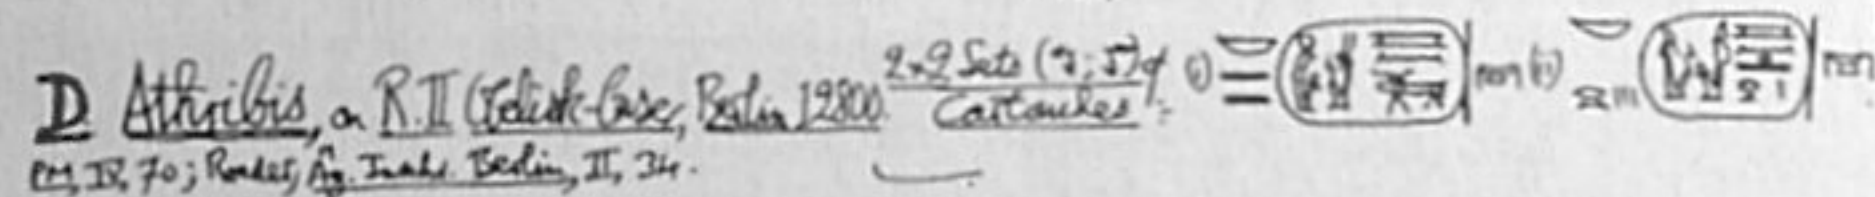 D Athribis, on R.II Obelisk-base, Berlin 12800. 2x2 Sets (?; 5) of Cartouches: (i) (ii)
PM, IV, 70; Roeder, Äg. Inschr. Berlin, II, 34.